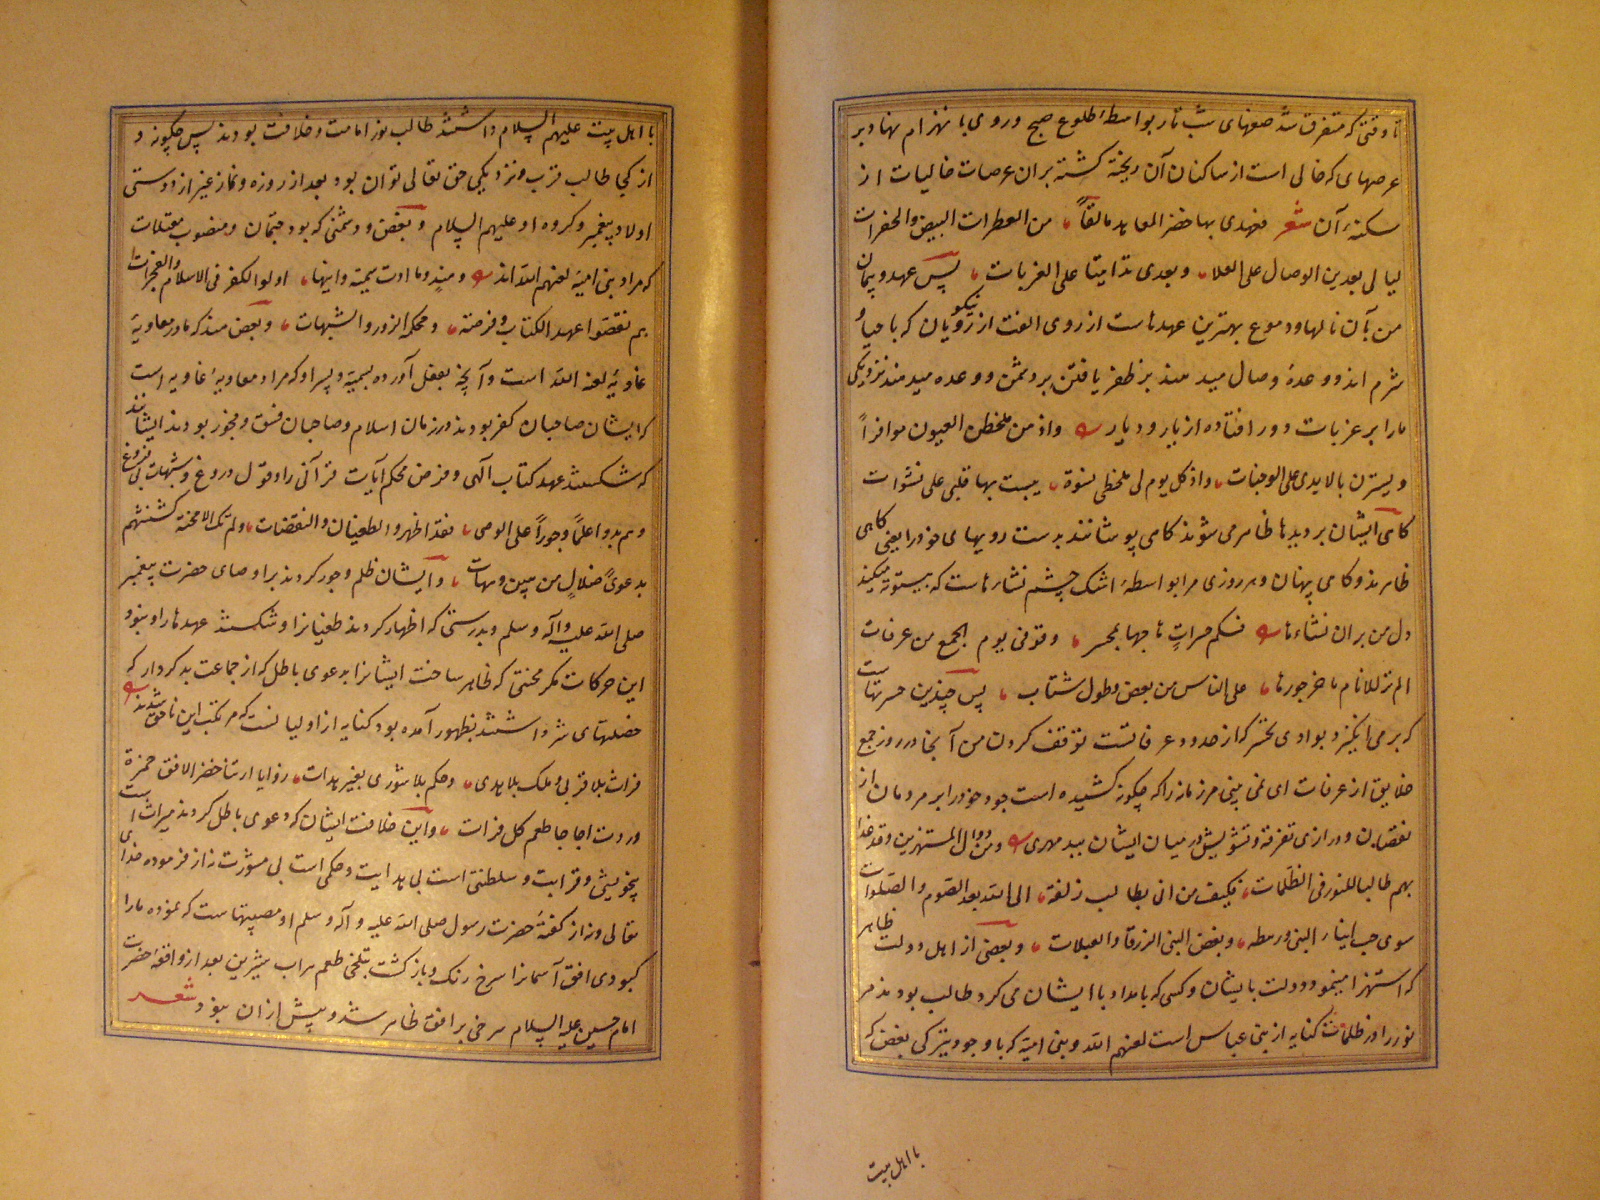 تا وقتی که متفرق شد صفهای شب تار بواسطهٔ طلوع صبح و روی بانهزام نهاد بر
عرصهای که خالی است از ساکنان آن ریخته گشته بران عرصات خالیات از
سکنهٔ آن شعر فعهدی بها خضر المعاهد مالقاً من العطرات البیض والخفرات
لیالی یعدین الوصال علی القلا و یعدی تدانینا علی الغربات پس عهد و پیمان
من بآن نالها و دموع بهترین عهدهاست از روی الفت از نیکو رویان که با حیا و
شرم اند و وعدهٔ وصال میدهند بر ظفر یافتن بر دشمن و وعده میدهند نزدیکی
ما را بر غربات دور افتاده از یار و دیار و اذ هن یلحظن العیون سوافراً
ویسترن بالایدی علی الوجنات و اذ کل یوم لی بلحظی نشوة یبیت بها قلبی علی نشوات
کاهی ایشان بر دیدها ظاهر می شوند کاهی پوشانند بدست رویهای خود را یعنی کاهی
ظاهرند و کاهی پنهان و هر روزی مرا بواسطهٔ اشک چشم نشارهاست که بیتوته میکند
دل من بران نشاءها فکم حسراتٍ هاجها بمحسر وقوفی یوم الجمع من عرفات
الم تر للایام ما جر جورها علی الناس من نقض وطول شتات پس چندین حسرتهاست
که برمی انکیزد بوادی محسر که از حدود عرفاتست توقف کردن من آنجا در روز جمع
خلایق از عرفات ای نمی بینی مر زمانه را که چکونه کشیده است جور خود را بر مردمان از
نقصان و درازی تفرقه و تشویش در میان ایشان ببدمهری و من دول المستهزئین و قد غدا
بهم طالبا للنور فی الظلمات فکیف من انی بطالب زلفة الی الله بعد الصوم والصلوات
سوی حب ابناء النبی و رهطه و بغض البنی الزرقا والعبلات و بعضی از اهل دولت ظاهر
که استهزا مینمود و دولت با ایشان و کسی که بامداد با ایشان می کرد طالب بودند مر
نور را در ظلمات کنایه از بنی عباس است لعنهم الله و بنی امیه که با وجود بیزرکی بغض که
با اهل بیت
با اهل بیت علیهم السلام داشتند طالب نور امامت و خلافت بودند پس چکونه و
از کجا طالب قرب و نزدیکی حق تعالی توان بود بعد از روزه و نماز غیر از دوستی
اولاد پیغمبر و کروه او علیهم السلام و بغض و دشمنی که بود
که مراد بنی امیه لعنهم الله اند و هند وما ادت سمیة وابنها اولوا الکفر فی الاسلام والفجرات
هم نقضوا عهد الکتاب و فرضه و محکمه الزور والشبهات و بغض هند که مادر معاویهٔ
غاویهٔ لعنه الله است و آنچه بفعل آورده سمیه و پسر او که مراد معاویهٔ غاویه است
که ایشان صاحبان کفر بودند در زمان اسلام و صاحبان فسق و فجور بودند ایشانند
که شکستند عهد کتاب الهی و فرض محکم آیات قرآنی را و قول دروغ و شبهات بی فروغ
و هم بدوا علماً وجوراً علی الوصی لقد اظهروا الطغیان والنقضات ولم تک الا محنة کشفتهم
بدعویٔ ضلالٍ من هن وهنات و ایشان ظلم و جور کردند بر اوصای حضرت پیغمبر
صلی الله علیه و آله و سلم و بدرستی که اظهار کردند طغیان را و شکستند عهدها را و نبود
این حرکات مکر محنتی که ظاهر ساخت ایشانرا بدعوی باطل که از جماعت بدکردار که
خصلتهای شر داشتند بظهور آمده بود کنایه از اولیانست که مرتکب این ناخوش شدند
تراث بلا قربی و ملک بلا هدی وحکم بلا شوری بغیر هدات رزایا ارتنا خضر الافق حمرة
وردت اجاجا طعم کل فرات و این خلافت ایشان که دعوی باطل کردند میراث است
بیخویشی و قرابت و سلطنتی است بی هدایت و حکمی است بی مشورت نه از فرموده خدای
تعالی و نه از کفتهٔ حضرت رسول صلی الله علیه و آله و سلم و مصیبتهاست که نموده ما را
کبودی افق آسمانرا سرخ رنک و باز کشت بتلخی طعم هر آب شیرین بعد از واقعهٔ حضرت
امام حسین علیه السلام سرخی بر افق ظاهر شد و پیش از ان نبود شعر